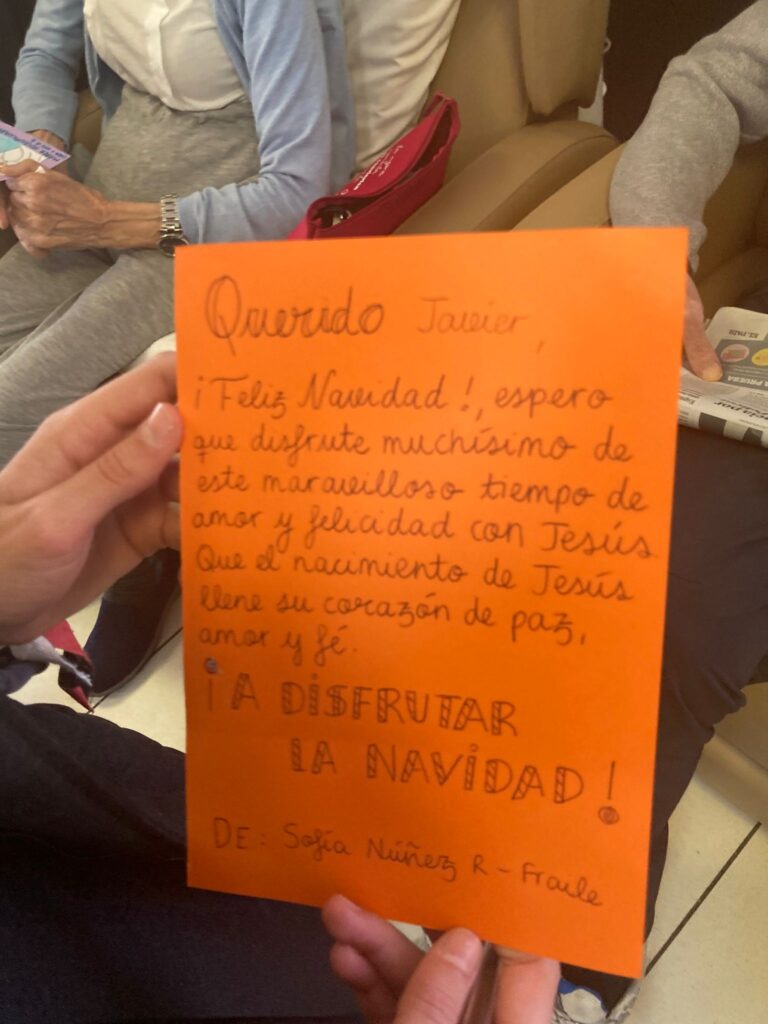 Querido Javier,
¡Feliz Navidad!, espero
que disfrute muchísimo de
este maravilloso tiempo de
amor y felicidad con Jesús
Que el nacimiento de Jesús
llene su corazón de paz,
amor y fé.
¡A DISFRUTAR
LA NAVIDAD!
DE: Sofía Núñez R-Fraile
EL PAÍS
A PRUEBA